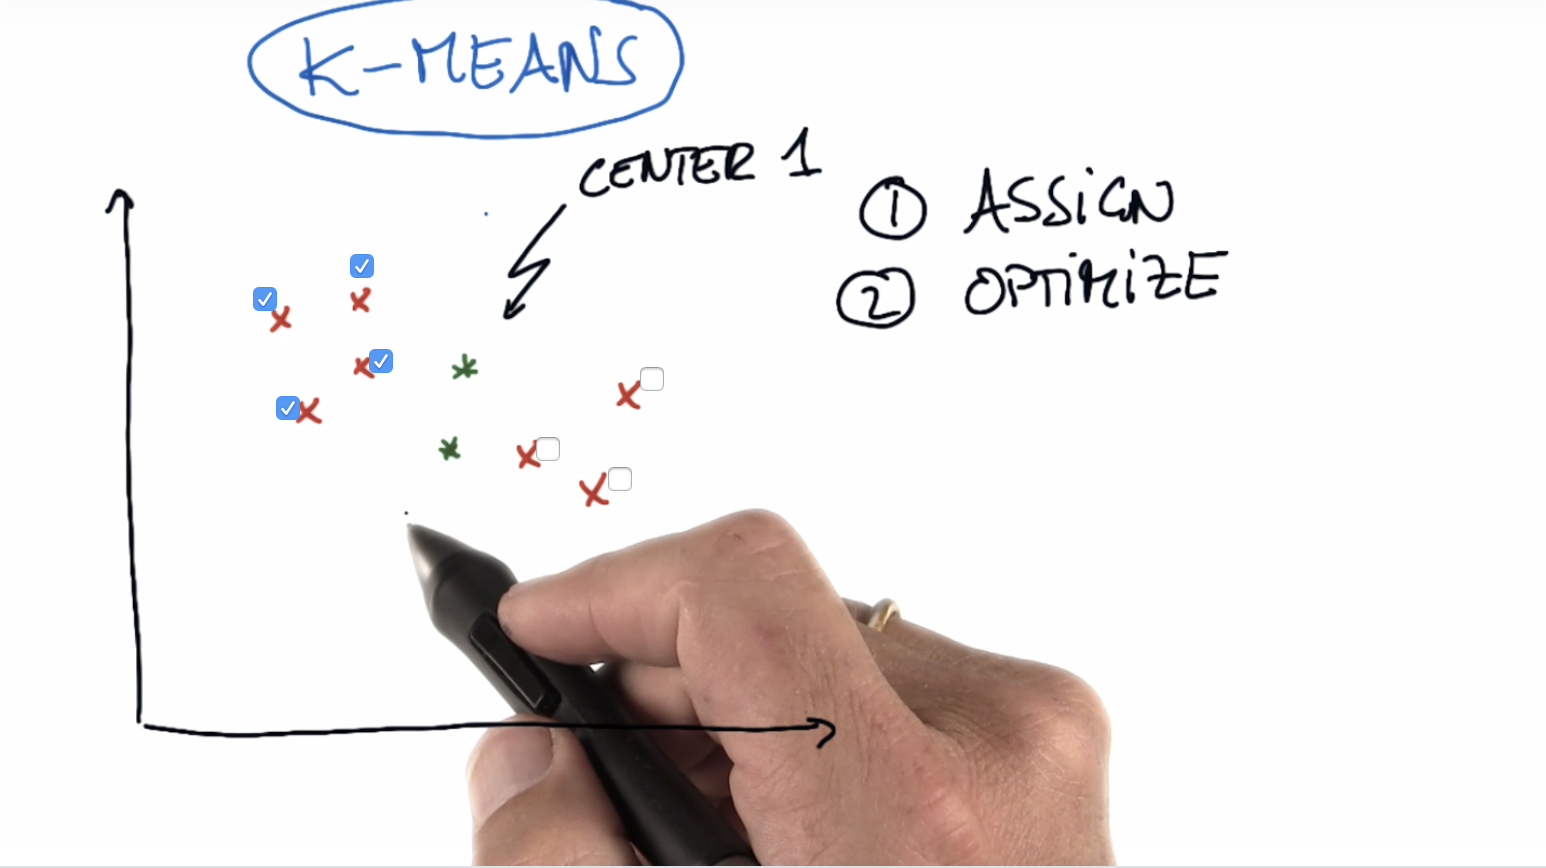 K-MEANS
CENTER 1
1 ASSiGN
2 OPTiMiZE